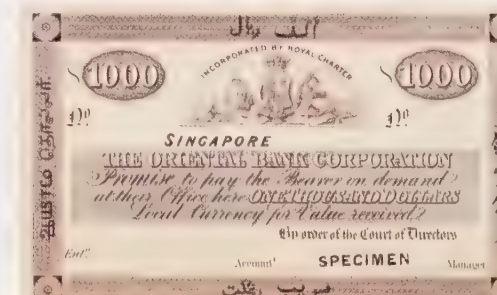 الف ريال
INCORPORATED BY ROYAL CHARTER
1000 1000
No No
SINGAPORE
THE ORIENTAL BANK CORPORATION
Promise to pay the Bearer on demand
at their Office here ONE THOUSAND DOLLARS
Local Currency for Value received
By order of the Court of Directors
Entd Accountt SPECIMEN Manager